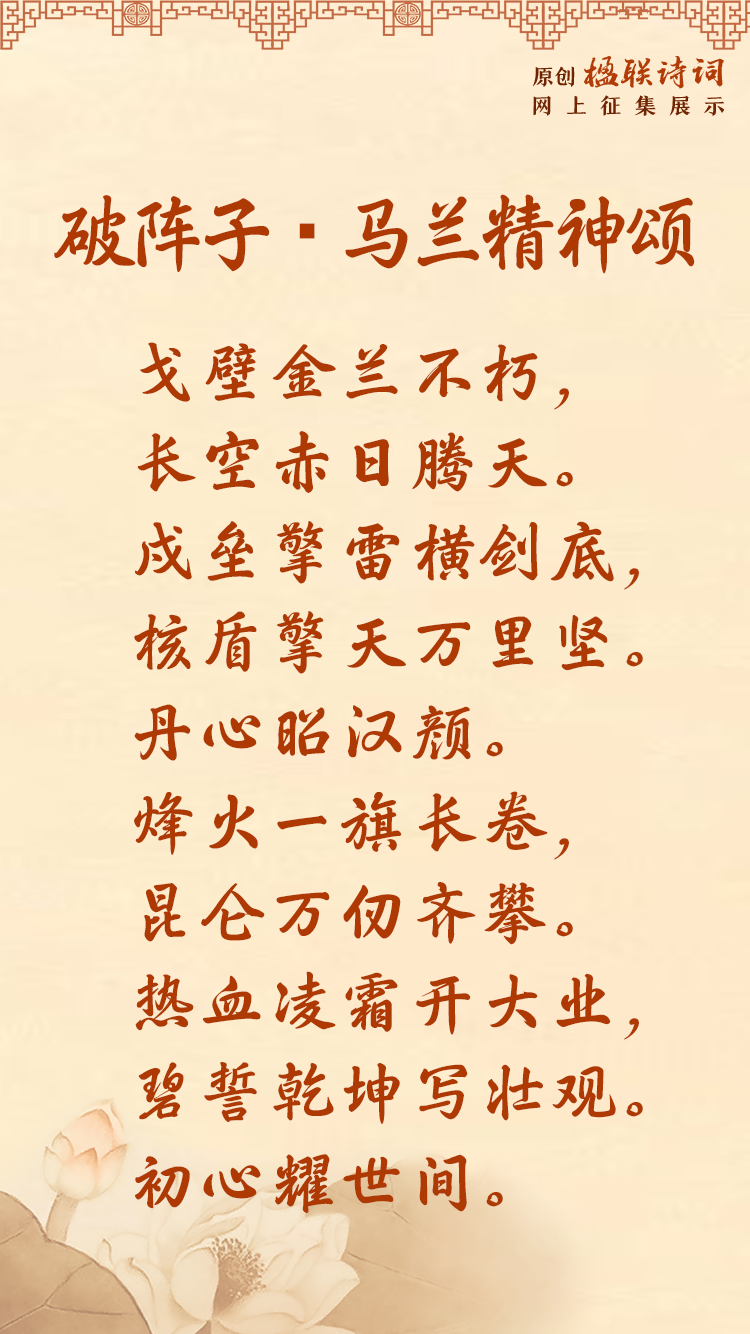 原创 楹联诗词
网上征集展示
破阵子·马兰精神颂
戈壁金兰不朽，
长空赤日腾天。
戍垒擎雷横剑底，
核盾擎天万里坚。
丹心昭汉颜。
烽火一旗长卷，
昆仑万仞齐攀。
热血凌霜开大业，
碧誓乾坤写壮观。
初心耀世间。